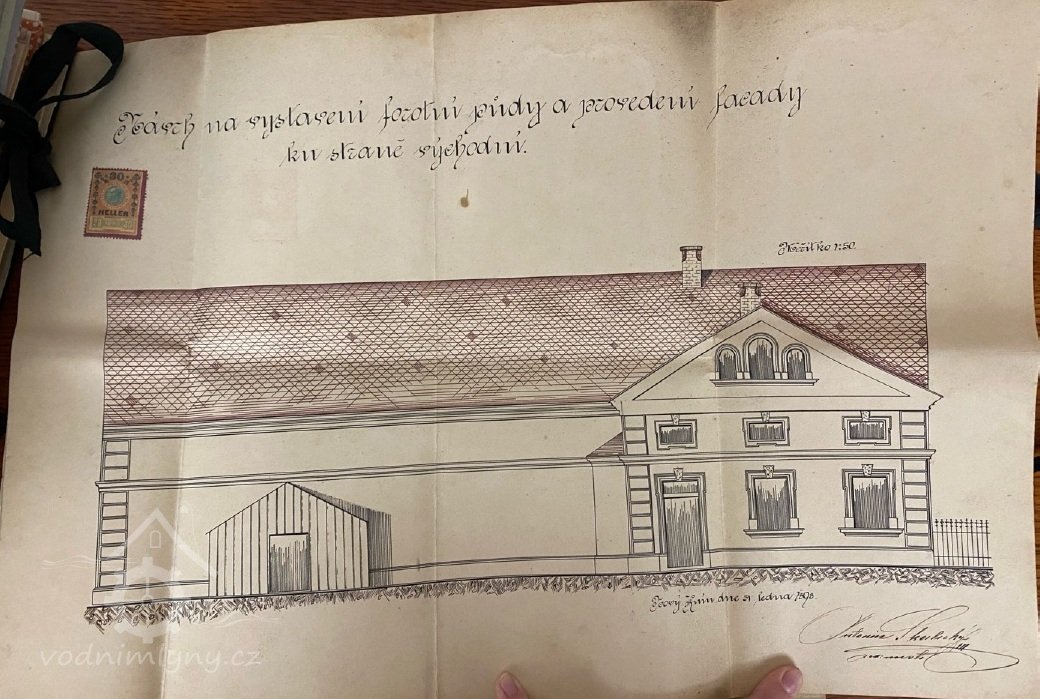 Návrh na vystavení forotní půdy a provedení facady
ku straně východní.
30
HELLER
Měřítko 1:50.
Nový Knín dne 31 ledna 1898.
Antonín
vodnimlyny.cz